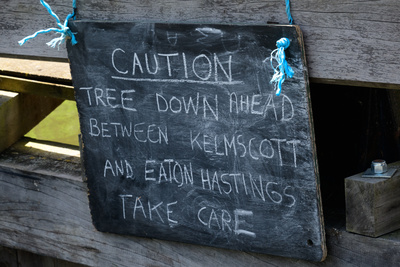 CAUTION
TREE DOWN AHEAD
BETWEEN KELMSCOTT
AND EATON HASTINGS
TAKE CARE